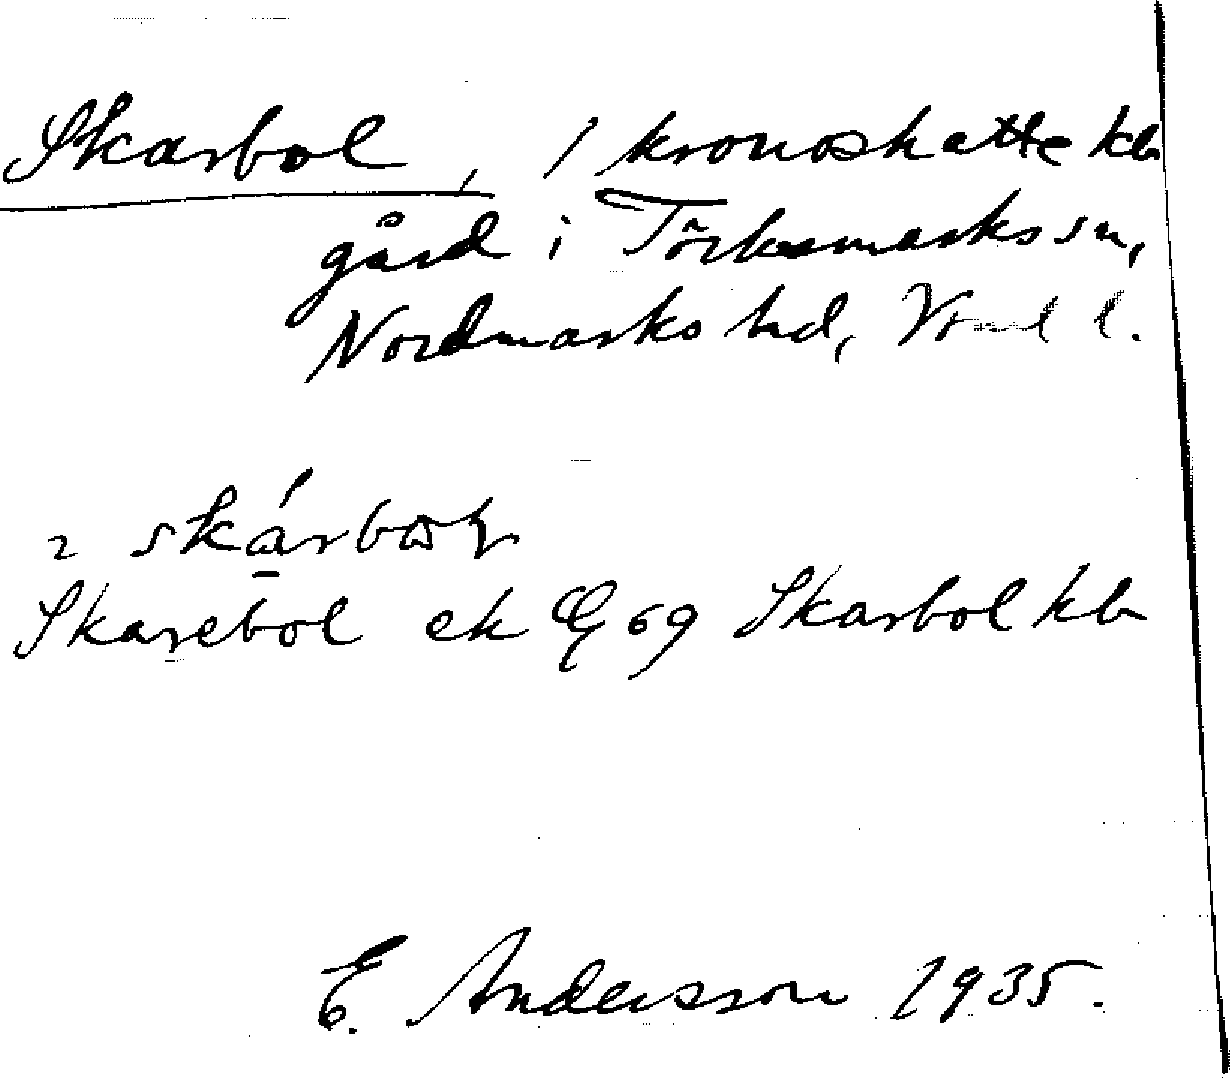 Skarbol, 1 kronoskatte kb
gård i Töcksmarks sn,
Nordmarks hd, Vrml l.
2 skárbo
Skarebol ek G 69 Skarbol kb
E. Andersson 1935.